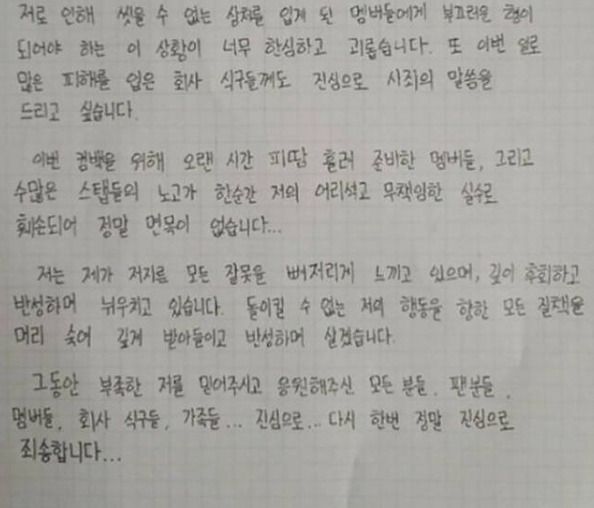 저로 인해 씻을 수 없는 상처를 입게 된 멤버들에게 부끄러운 형이
되어야 하는 이 상황이 너무 한심하고 괴롭습니다. 또 이번 일로
많은 피해를 입은 회사 식구들께도 진심으로 사죄의 말씀을
드리고 싶습니다.
이번 컴백을 위해 오랜 시간 피땀 흘려 준비한 멤버들, 그리고
수많은 스탭들의 노고가 한순간 저의 어리석고 무책임한 실수로
훼손되어 정말 면목이 없습니다...
저는 제가 저지른 모든 잘못을 뼈저리게 느끼고 있으며, 깊이 후회하고
반성하며 뉘우치고 있습니다. 돌이킬 수 없는 저의 행동을 향한 모든 질책을
머리 숙여 깊게 받아들이고 반성하며 살겠습니다.
그동안 부족한 저를 믿어주시고 응원해주신 모든 분들, 팬분들,
멤버들, 회사 식구들, 가족들... 진심으로... 다시 한번 정말 진심으로
죄송합니다...